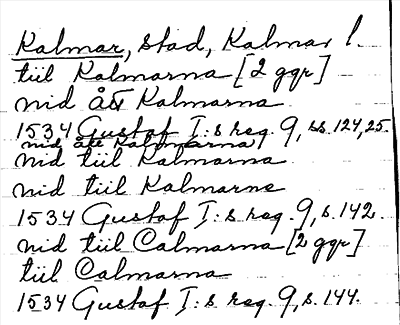 Kalmar, stad, Kalmar l.
tiil Kalmarna [2 ggr]
nid ått Kalmarna
1534 Gustaf I:s reg. 9, ss. 124, 25.
nid ått Kalmarna
nid tiil Kalmarna
nid tiil Kalmarne
1534 Gustaf I:s reg. 9, s. 142.
nid till Calmarna [2 ggr]
tiil Calmarna
1534 Gustaf I:s reg. 9, s. 144.